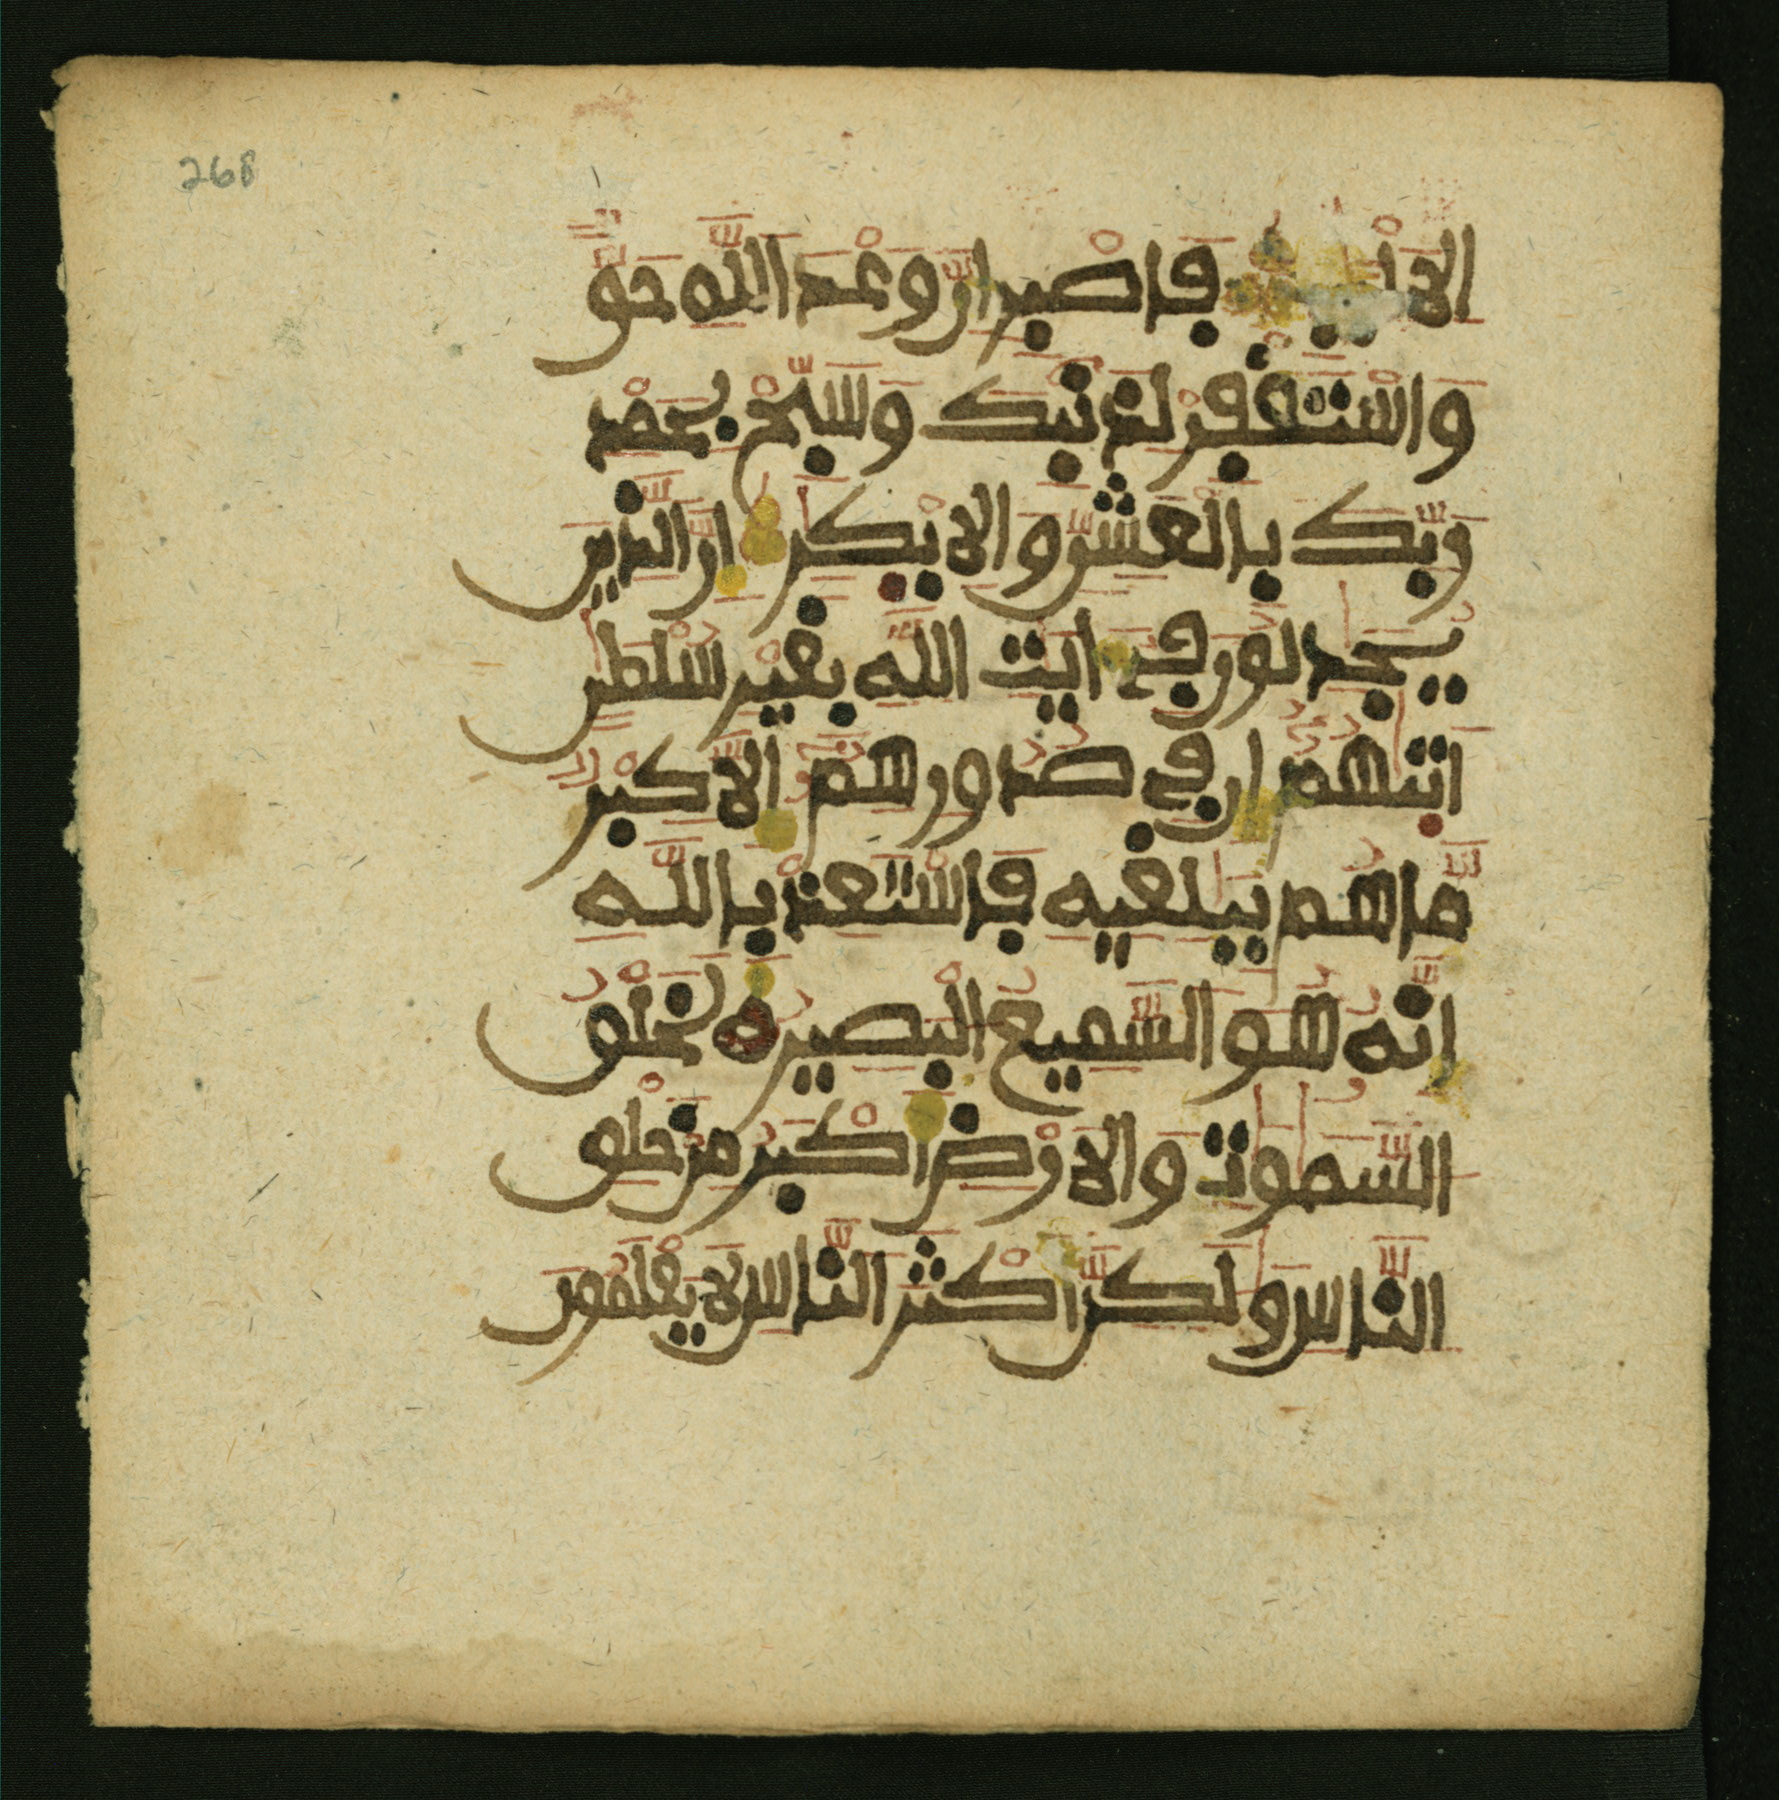 268
الالبب فاصبر ان وعد الله حق
واستغفر لذنبك وسبح بحمد
ربك بالعشي والابكر ان الذين
يجدلون في ايت الله بغير سلطن
اتيهم ان في صدورهم الا كبر
ما هم ببلغيه فاستعذ بالله
انه هو السميع البصير لخلق
السموت والارض اكبر من خلق
الناس ولكن اكثر الناس لا يعلمون